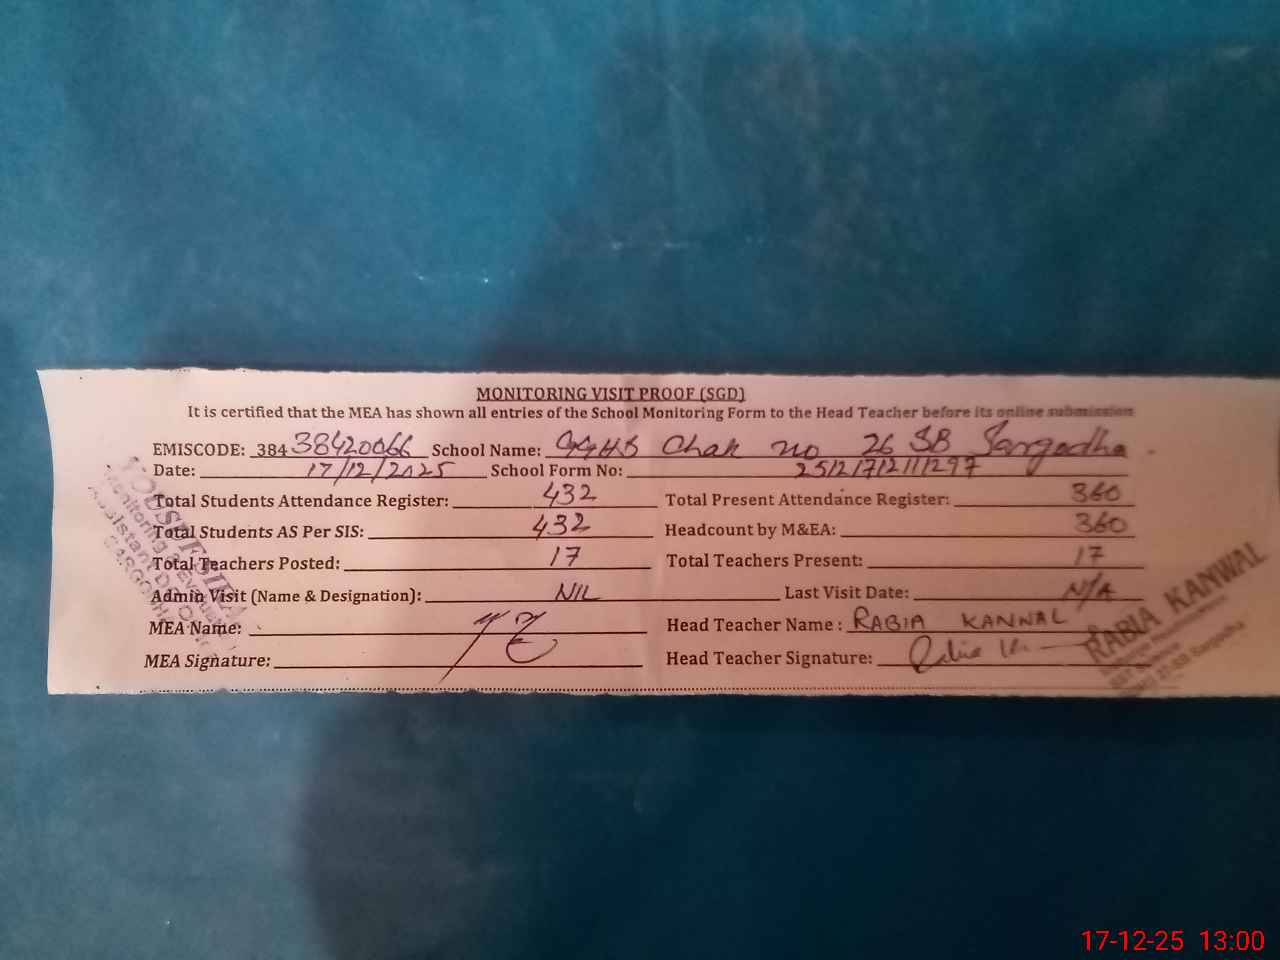 MONITORING VISIT PROOF (SGD)
It is certified that the MEA has shown all entries of the School Monitoring Form to the Head Teacher before its online submission
EMISCODE: 384 38420066 School Name: GGHS Chak no 26 SB Sargodha
Date: 17/12/2025 School Form No: 25121712111297
Total Students Attendance Register: 432 Total Present Attendance Register: 360
Total Students AS Per SIS: 432 Headcount by M&EA: 360
Total Teachers Posted: 17 Total Teachers Present: 17
Admin Visit (Name & Designation): NIL Last Visit Date: N/A
MEA Name: Head Teacher Name : RABIA KANWAL
MEA Signature: Head Teacher Signature:
RABIA KANWAL
Monitoring & Evaluation
Assistant
17-12-25 13:00